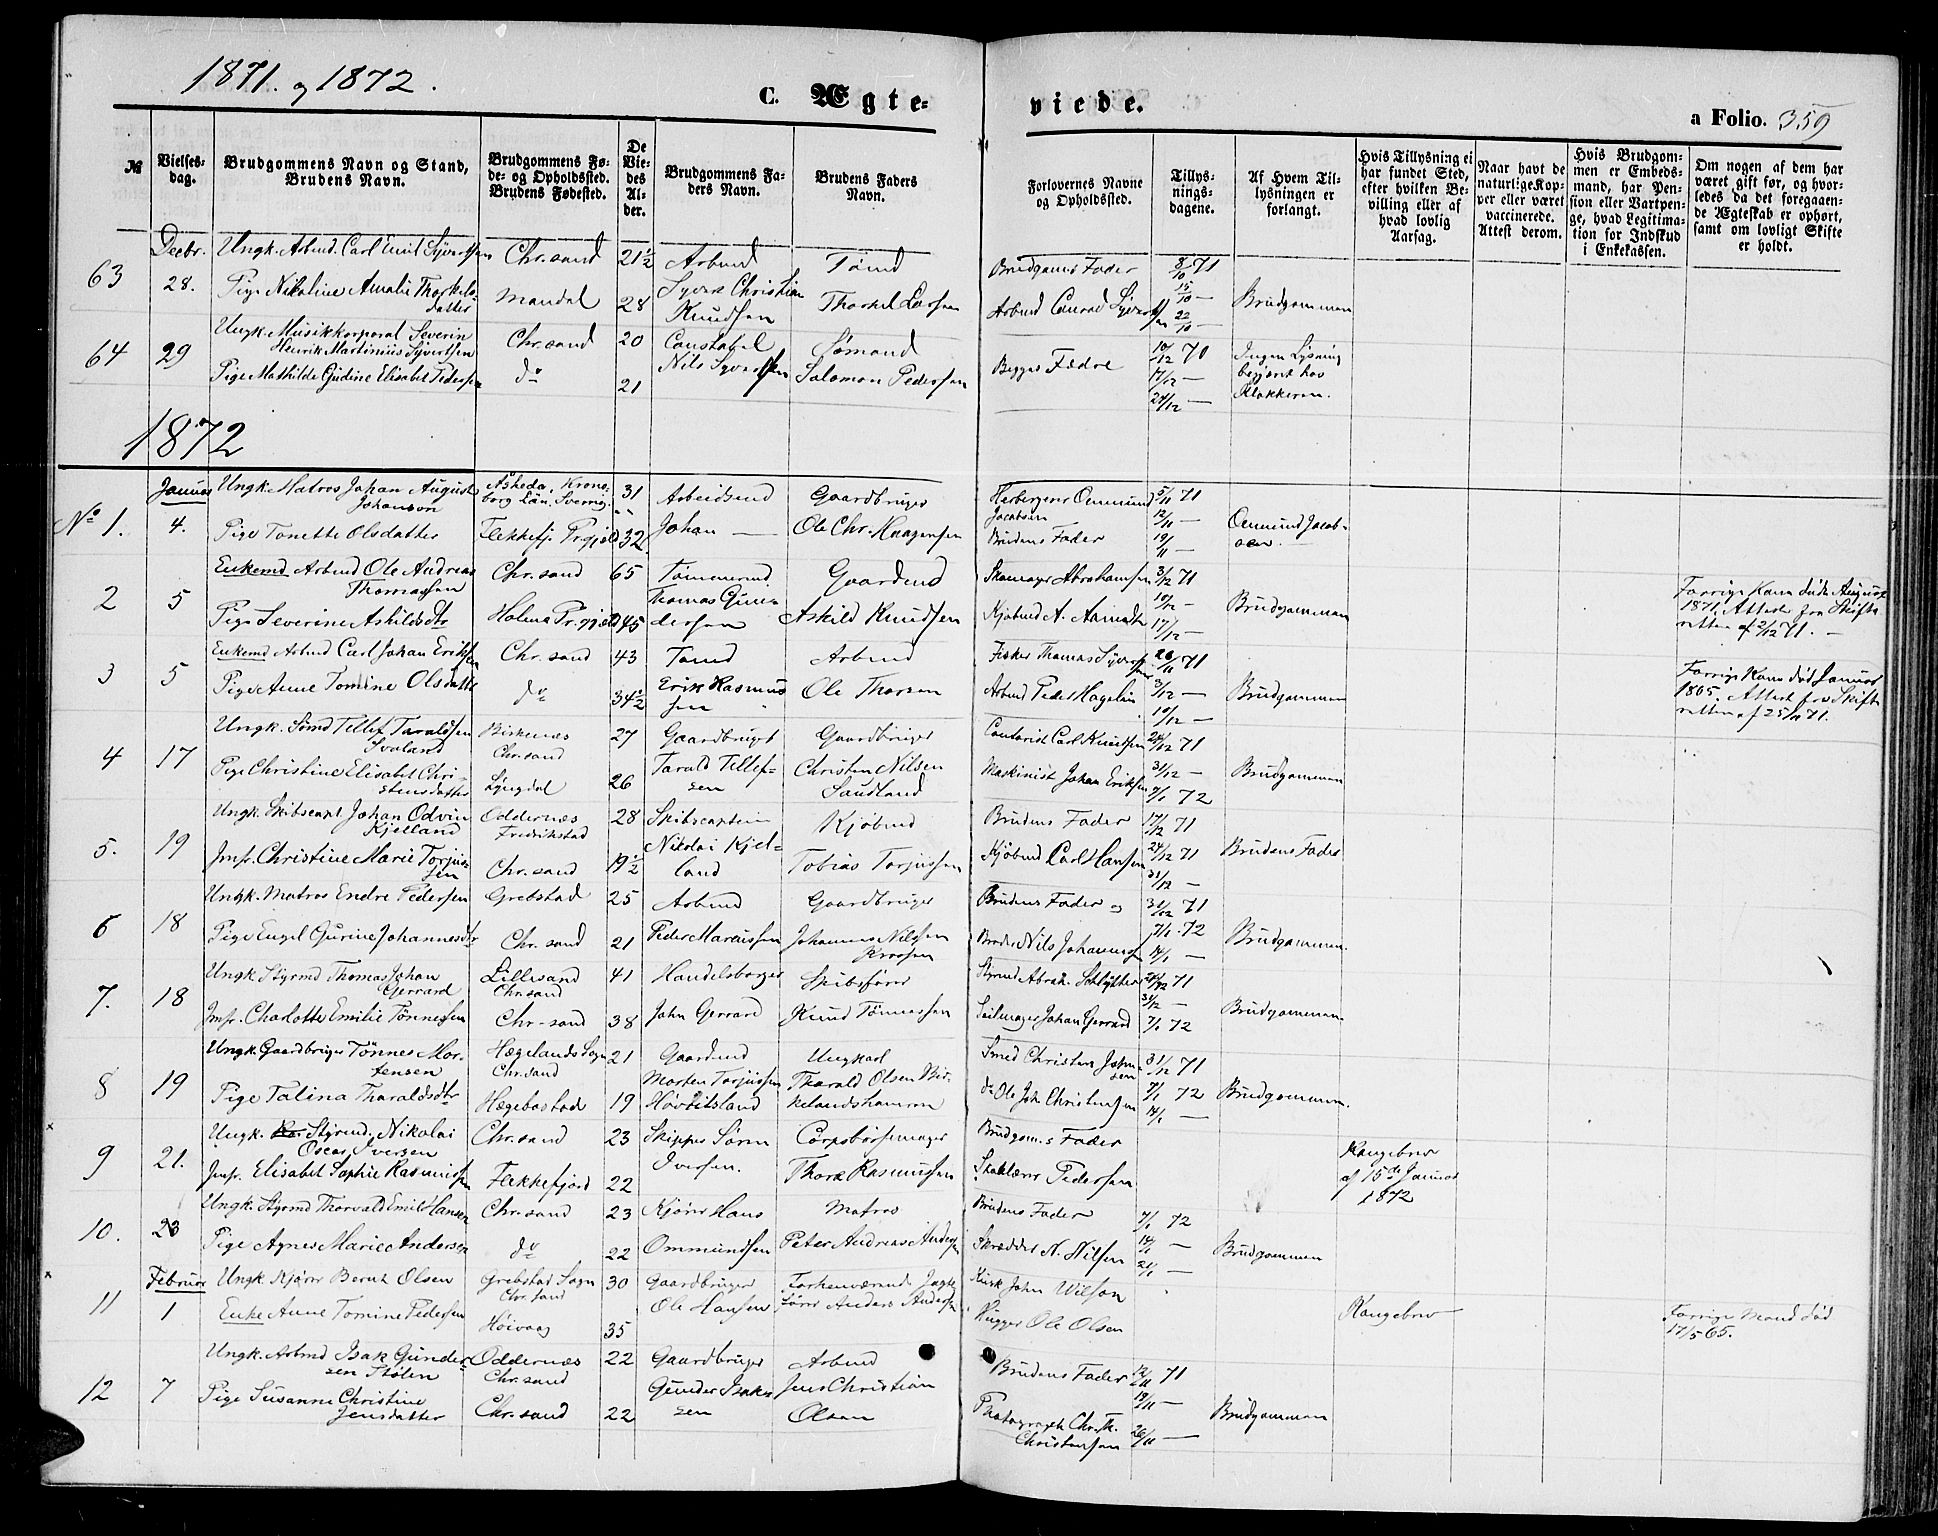 1871. og 1872.
C. Ægte-
viede.
a Folio. 359
№
Vielses-
dag.
Brudgommens Navn og Stand,
Brudens Navn.
Brudgommens Fø-
de- og Opholdssted.
Brudens Fødested.
De
Vie-
des
Al-
der.
Brudgommens Fa-
ders Navn.
Brudens Faders
Navn.
Forlovernes Navne
og Opholdssted.
Tillys-
nings-
dagene.
Af Hvem Til-
lysningen er
forlangt.
Hvis Tillysning ei
har fundet Sted,
efter hvilken Be-
villing eller af
hvad lovlig
Aarsag.
Naar havt de
naturlige Kop-
per eller været
vaccinerede.
Attest derom.
Hvis Brudgom-
men er Embeds-
mand, har Pen-
sion eller Vartpen-
ge, hvad Legitima-
tion for Indskud
i Enkekassen.
Om nogen af dem har
været gift før, og hvor-
ledes da det foregaaen-
de Ægteskab er ophørt,
samt om lovligt Skifte
er holdt.
63
Decbr.
28.
Ungk. Arbmd. Carl Emil Syvertsen
Pige Nikoline Amalie Thorkels-
datter
Chr.sand
Mandal
21½
28
Arbmd
Syvert Christian
Knudsen
Tømd
Thorkel Larsen
Brudgoms Fader
Arbmd Conrad Syvert-
sen
8/10 71
15/10 —
22/10 —
Brudgommen
64
29
Ungk. Musikkorporal Severin
Henrik Martinius Syvertsen
Pige Mathilde Gudine Elisabet Pedersen
Chr.sand
do
20
21
Constabel
Nils Syvertsen
Sømand
Salomon Pedersen
Begges Fædre
10/12 71
17/12 —
24/12 —
Ingen Lysning
begjært hos
Klokkeren.
1872
No 1.
Januar
4.
Ungk. Matros Johan August
Johanson
Pige Tonette Olsdatter
Åsheda, Krono-
borg Län, Sverrig.
Flekkefj. Prgjeld
31
32
Arbeidsmd
Johan —
Gaardbruger
Ole Chr. Haagensen
Herbergerer Ommund
Jacobsen
Brudens Fader
5/11 71
12/11 —
19/11 —
Ommund Jacob-
sen. —
2
5
Enkemd Arbmd Ole Andreas
Thomassen
Pige Severine Askildsdtr
Chr.sand
Holums Prgjeld
65
45
Tømmermd
Thomas Gun-
dersen
Gaardmd
Askild Knudsen
Skomager Abrahamsen
Kjøbmd A.
3/12 71
10/12 —
17/12 —
Brudgommen
Forrige Kone død August
1871. Attest fra Skifte-
retten af 2/12 71. —
3
5
Enkemd Arbmd Carl Johan Eriksen
Pige Anne Tomine Olsdatter
Chr.sand
do
43
34½
Tømd
Erik Rasmus-
sen
Arbmd
Ole Thorsen
Fisker Thomas Syvertsen
Arbmd Peder Hagelin
26/11 71
3/12 —
10/12 —
Brudgommen
Forrige Kone død Januar
1865. Attest fra Skifte-
retten af 25/11 71.
4
17
Ungk. Sømd Tellef Taraldsen
Svaland
Pige Christine Elisabet Chri-
stensdatter
Birkenæs
Chr.sand
Lyngdal
27
26
Gaardbruger
Tarald Tellef-
sen
Gaardbruger
Christen Nilsen
Sandland
Contorist Carl Knudsen
Maskinist Johan Eriksen
24/12 71
31/12 —
7/1 72
Brudgommen
5.
19
Ungk. Skibscapt Johan Odvin
Kjelland
Jmfr. Christine Marie Torjus-
sen
Oddernæs
Fredrikstad
Chr.sand
28
19½
Skibscaptein
Nikolai Kjel-
land
Kjøbmd
Tobias Torjussen
Brudens Fader
Kjøbmd Carl Hansen
17/12 71
24/12 71
31/12 —
Brudens Fader
6
18
Ungk. Matros Endre Pedersen
Pige Engel Gurine Johannesdtr
Grebstad
Chr. sand
25
21
Arbmd
Peder Marcussen
Gaardbruger
Johannes Nilsen
Broder Nils Johannesen
Brudens Fader og
31/12 71
7/1 72
14/1 —
Brudgommen.
7.
18
Ungk. Styrmd Thomas Johan
Gerrard
Jmfr. Charlotte Emilie Tønnesen
Lillesand
Chr.sand
Chr-sand
41
38
Handelsborger
John Gerrard
Skibsfører
Knud Tønnessen
Styrmd Abrah. Schlytter
Seilmager Johan Gerrard
24/12 71
31/12 —
7/1 72
Brudgommen
8
19
Ungk. Gaardbruger Tönnes Mor-
tensen
Pige Talina Tharaldsdtr
Hægelands Sogn
Chr.sand
Hægebostad
21
19
Gaardmd
Morten Torjussen
Høvbitsland
Ungkarl
Tharald Olsen Bir-
kelandshamren
Smed Christen John-
sen
do Ole Joh. Christensen
31/12 71
7/1 72
14/1 —
Brudgommen.
9
21.
Ungk. Styrmd. Nikolai
Oscar Iversen
Jmfr. Elisabet Sophie Rasmussen
Chr.sand
Flekkefjord
23
22
Skipper Sören
Iversen.
Corpsbøssemager
Thore Rasmussen
Brudgom.s Fader
Skolelærer Pedersen
Kongebrev
af 15de Januar
1872
10.
23
Ungk. Styrmd Thorvald Emil Hansen
Pige Agnes Marie Andersen
Chr.sand
do
23
22
Kjører Hans
Ommundsen
Matros
Peter Andreas Andersen
Brudens Fader
Skrædder N. Nilsen
7/1 72
14/1 —
21/1 —
Brudgommen
11
Februar
1
Ungk. Kjører Bernt Olsen
Enke Anne Tomine Pedersen
Grebstad Sogn
Chr.sand
Höivaag
30
35
Gaardbruger
Ole Hansen
Forhenværende Jagte-
fører Anders Andersen
Kusk John Wilson
Rugger Ole Olsen
Kongebrev
Forrige Mand død
17/5 65.
12
7
Ungk. Arbmd Isak Gunder-
sen Stølen
Pige Susanne Christine
Jensdatter
Oddernæs
Chr.sand
Chr.sand
22
22
Gaardbruger
Gunder Isak-
sen
Arbmd
Jens Christian
Olsen
Brudens Fader
Photograph Chr. Th.
Christensen
12/11 71
19/11 —
26/11 —
Brudgommen